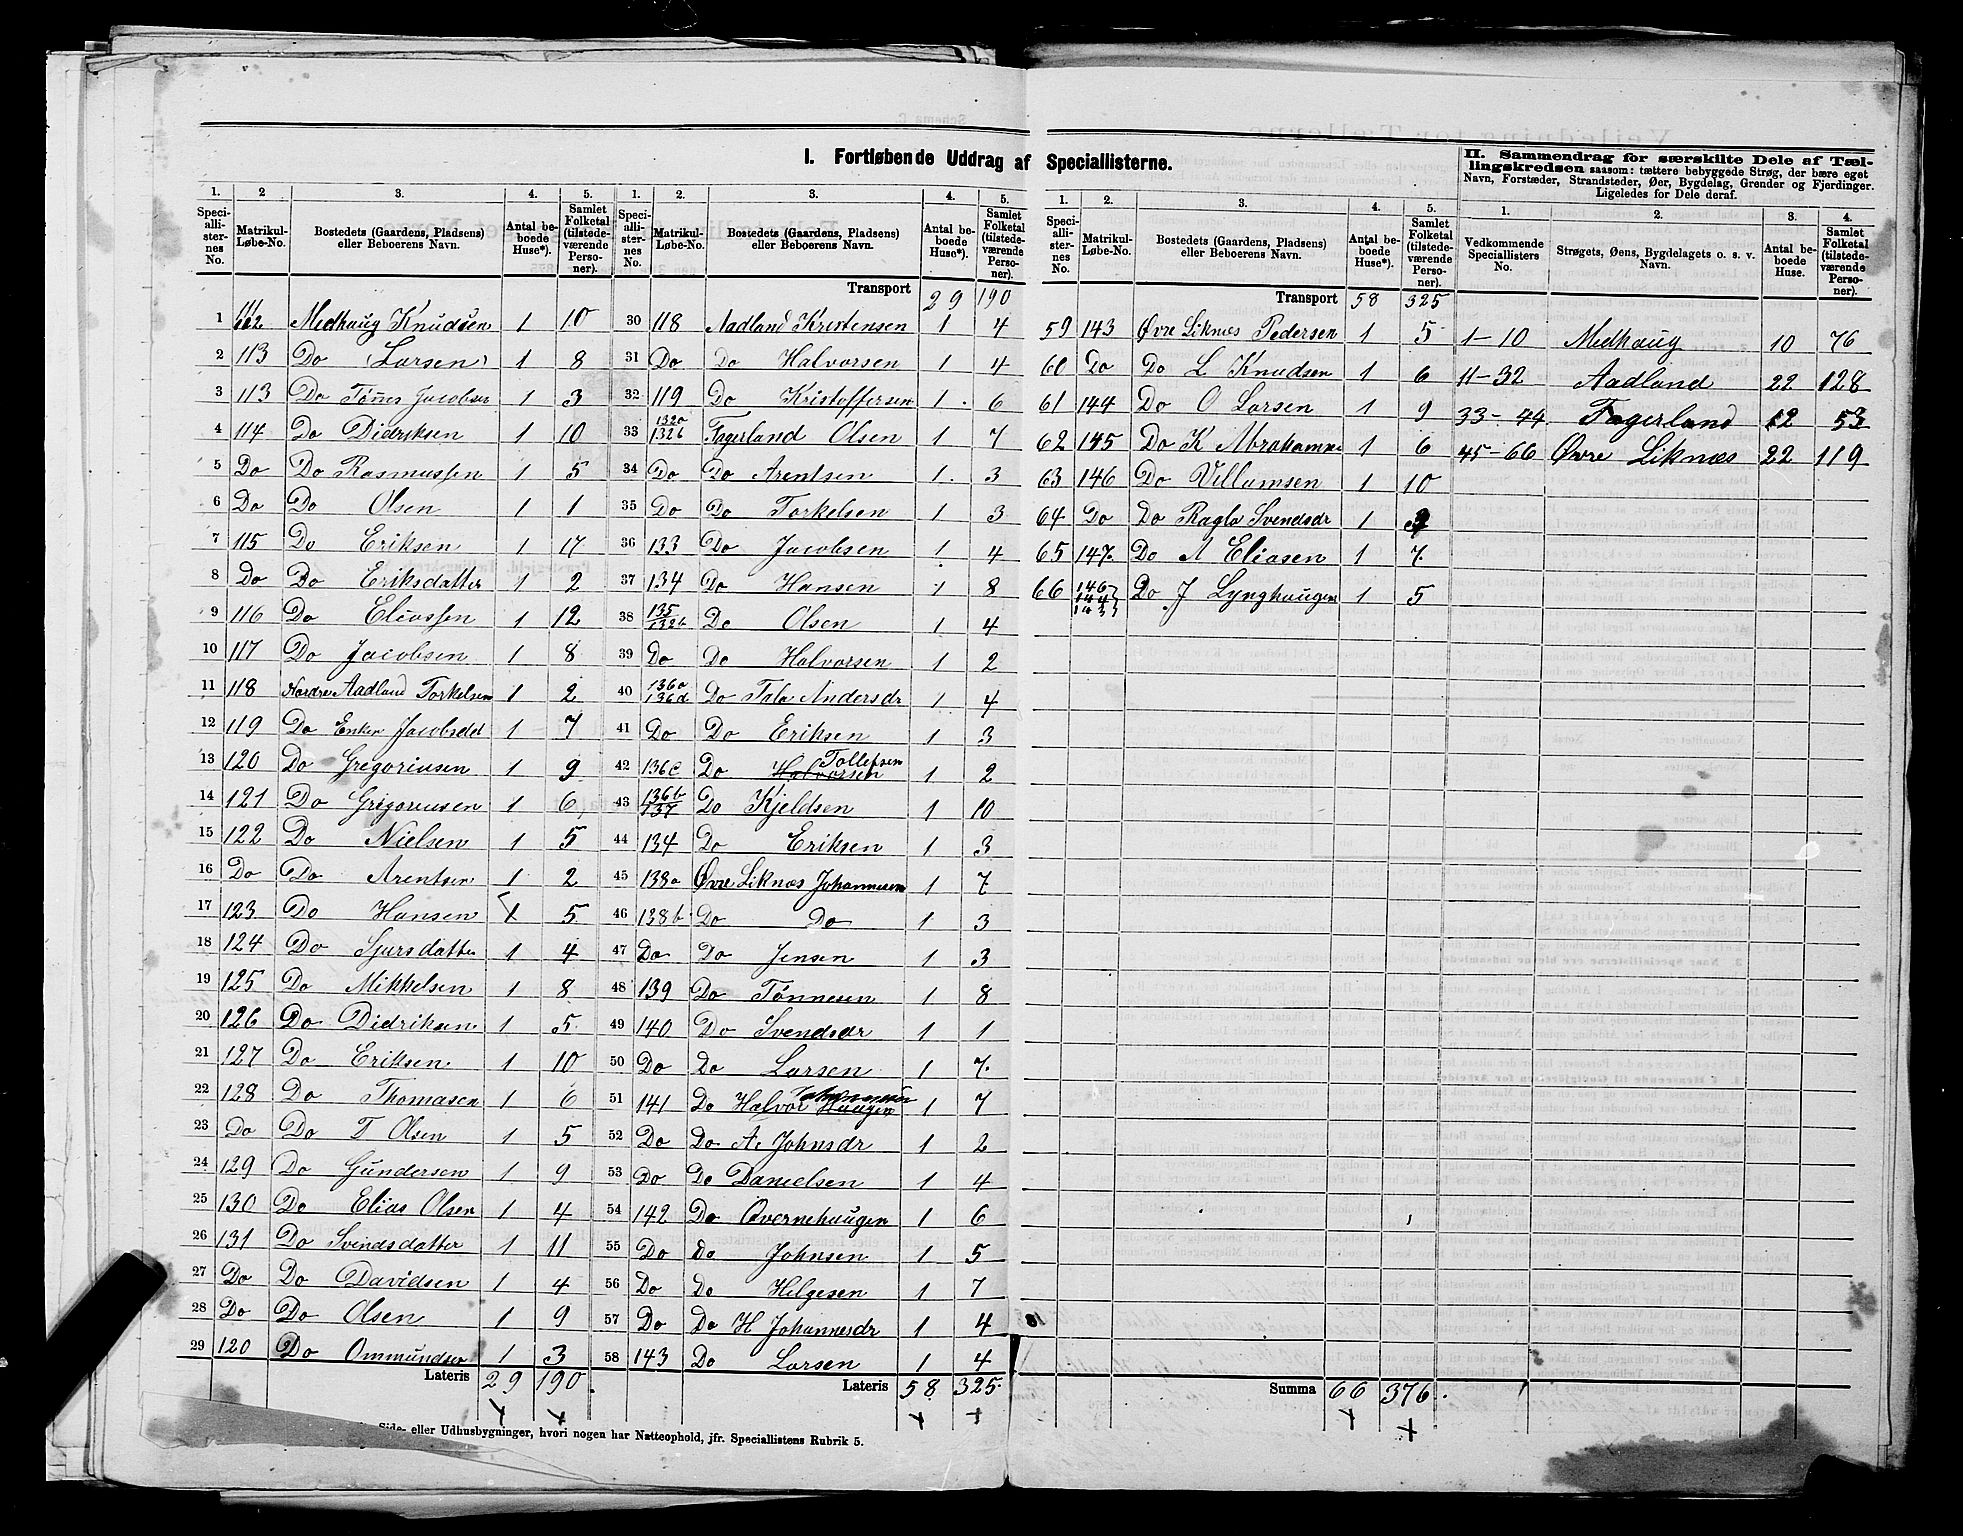 I. Fortløbende Uddrag af Speciallisterne.
1. 2 3. 4. 5.
Speciallisternes No. Matrikul-Løbe-No. Bostedets (Gaardens, Pladsens) eller Beboerens Navn. Antal beboede Huse*). Samlet Folketal (tilstedeværende Personer).
1 112 Medhaug Knudsen 1 10
2 113 Do Larsen 1 8
3 113 Do Tønnes Jacobsen 1 3
4 114 Do Didriksen 1 10
5 Do Do Rasmussen 1 5
6 Do Do Olsen 1 1
7 115 Do Eriksen 1 17
8 Do Do Eriksdatter 1 2
9 116 Do Eliassen 1 12
10 117 Do Jacobsen 1 8
11 118 Nordre Aadland Torkelsen 1 2
12 119 Do Enken Jacobsdat 1 7
13 120 Do Gregoriusen 1 9
14 121 Do Grigoriusen 1 6
15 122 Do Nielsen 1 5
16 Do Do Arentsen 1 2
17 123 Do Hansen 1 5
18 124 Do Sjursdatter 1 4
19 125 Do Mikkelsen 1 8
20 126 Do Didriksen 1 5
21 127 Do Eriksen 1 10
22 128 Do Thomasen 1 6
23 Do Do T Olsen 1 5
24 129 Do Gundersen 1 9
25 130 Do Elias Olsen 1 4
26 131 Do Svindsdatter 1 11
27 Do Do Davidsen 1 4
28 Do Do Olsen 1 9
29 120 Do Ommundsen 1 3
Lateris 29 190
1. 2. 3. 4. 5.
Speciallisternes No. Matrikul-Løbe-No. Bostedets (Gaardens, Pladsens) eller Beboerens Navn. Antal beboede Huse*). Samlet Folketal (tilstedeværende Personer).
Transport 29 190
30 118 Aadland Kristensen 1 4
31 Do Do Halvorsen 1 4
32 119 Do Kristoffersen 1 6
33 132a 132b Fagerland Olsen 1 7
34 Do Do Arentsen 1 3
35 Do Do Torkelsen 1 3
36 133 Do Jacobsen 1 4
37 134 Do Hansen 1 8
38 135 132b Do Olsen 1 4
39 Do Do Halvorsen 1 2
40 136a 136d Do Tala Andersdr 1 4
41 Do Do Eriksen 1 3
42 136c Do Halvorsen Tollefsen 1 2
43 136b 137 Do Kjeldsen 1 10
44 134 Do Eriksen 1 3
45 138a Øvre Liknæs Johannesen 1 7
46 138b Do Do 1 3
47 Do Do Jensen 1 3
48 139 Do Tønnesen 1 8
49 140 Do Svendsdr 1 1
50 Do Do Larsen 1 7
51 141 Do Halvor Haugen 1 7
52 Do Do A. Johnsdr 1 2
53 Do Do Danielsen 1 4
54 142 Do Qvernehaugen 1 6
55 Do Do Johnsen 1 5
56 Do Do Helgesen 1 7
57 Do Do H Johannesdr 1 4
58 143 Do Larsen 1 4
Lateris 58 325
Side- eller Udhusbygninger, hvori nogen har Natteophold, jfr. Speciallistens Rubrik 5.
1. 2. 3. 4. 5.
Speciallisternes No. Matrikul-Løbe-No. Bostedets (Gaardens, Pladsens) eller Beboerens Navn. Antal beboede Huse*). Samlet Folketal (tilstedeværende Personer).
Transport 58 325
59 143 Øvre Liknæs Pedersen 1 5
60 Do Do L Knudsen 1 6
61 144 Do O Larsen 1 9
62 145 Do K Abrahamse 1 6
63 146 Do Villumsen 1 10
64 Do Do Ragla Svendsdr 1 3
65 147 Do A Eliasen 1 7
66 146 144 143 Do J Lynghaugen 1 5
Summa 66 376
II. Sammendrag for særskilte Dele af Tællingskredsen saasom: tættere bebyggede Strøg, der bære eget
Navn, Forstæder, Strandsteder, Øer, Bygdelag, Grender og Fjerdinger.
Ligeledes for Dele deraf.
1. 2. 3. 4.
Vedkommende Speciallisters No. Strøgets, Øens, Bygdelagets o. s. v. Navn. Antal beboede Huse. Samlet Folketal (tilstedeværende Personer).
1-10 Medhaug 10 76
11-32 Aadland 22 128
33-44 Fagerland 12 53
45-66 Øvre Liknæs 22 119